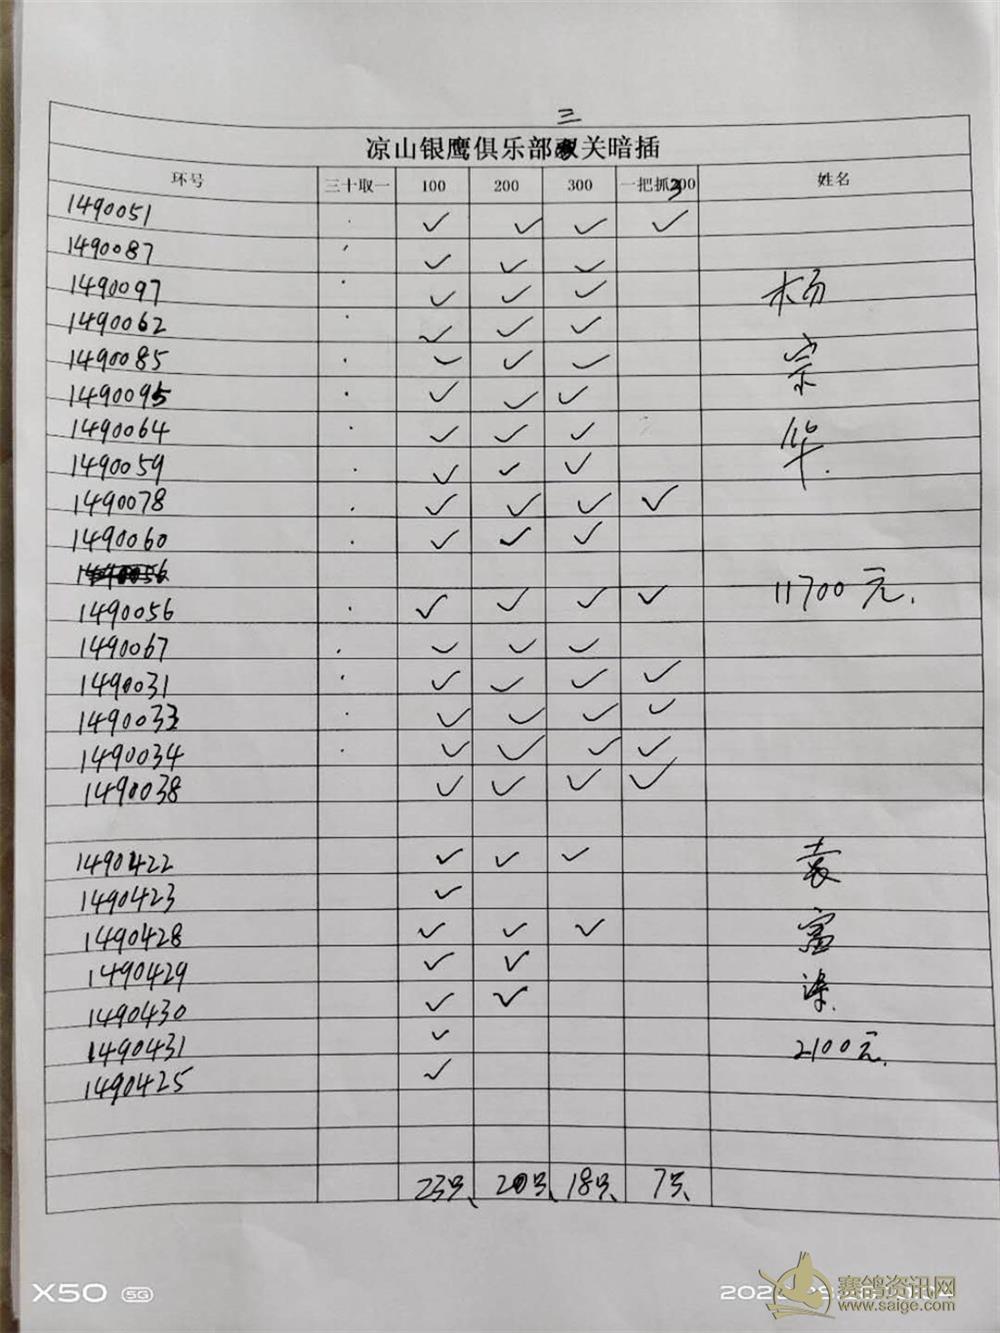 三
凉山银鹰俱乐部关暗插
环号 三十取一 100 200 300 一把抓300 姓名
1490051 ✓ ✓ ✓ ✓
1490087 ✓ ✓ ✓
1490097 ✓ ✓ ✓ 杨
1490062 ✓ ✓ ✓
1490085 ✓ ✓ ✓ 宗
1490095 ✓ ✓ ✓
1490064 ✓ ✓ ✓ 华.
1490059 ✓ ✓ ✓
1490078 ✓ ✓ ✓ ✓
1490060 ✓ ✓ ✓
11700元.
1490056 ✓ ✓ ✓ ✓
1490067 ✓ ✓ ✓
1490031 ✓ ✓ ✓ ✓
1490033 ✓ ✓ ✓ ✓
1490034 ✓ ✓ ✓ ✓
1490038 ✓ ✓ ✓ ✓
1490422 ✓ ✓ ✓ 袁
1490423 ✓
1490428 ✓ ✓ ✓ 富
1490429 ✓ ✓
1490430 ✓ ✓
1490431 ✓ 2100元.
1490425 ✓
23只、 20只、 18只、 7只、
X50 5G
赛鸽资讯网
www.saige.com